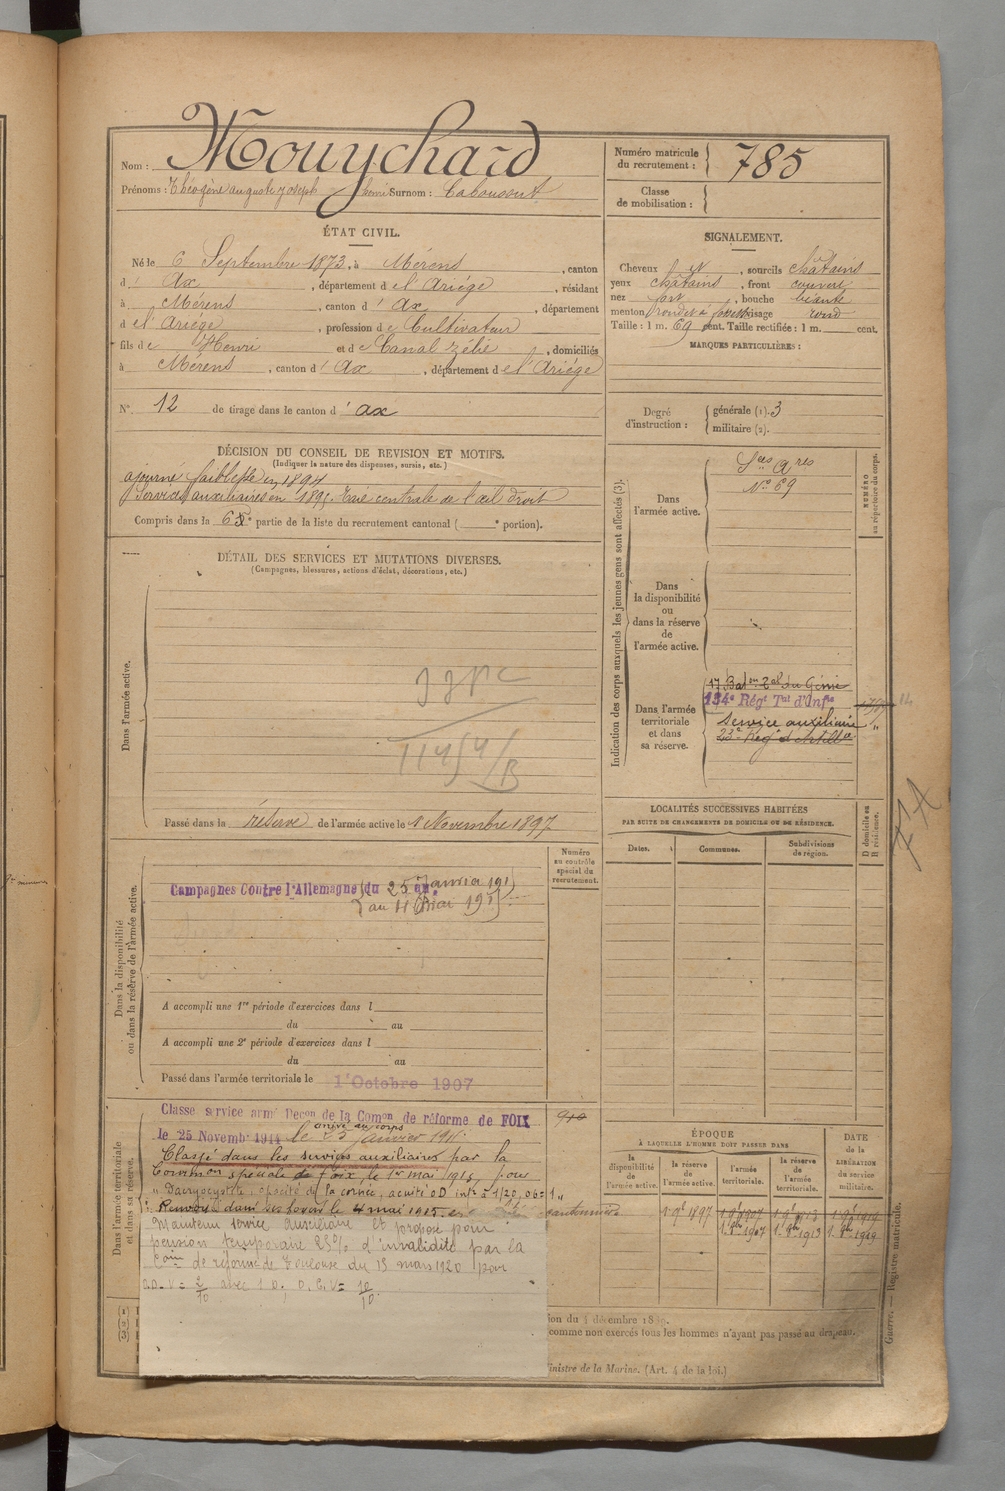 Nom : Mouychard
Prénoms : Théogène auguste Joseph Surnom : Caboussout
Numéro matricule du recrutement : 785
Classe de mobilisation :
ÉTAT CIVIL.
Né le 6 Septembre 1873, à Mérens, canton
d' Ax, département de l'Ariège, résidant
à Mérens, canton d' Ax, département
de l'Ariège, profession de Cultivateur
fils de Henri et de Canal Zélie, domiciliés
à Mérens, canton d' Ax, département de l'Ariège
N° 12 de tirage dans le canton d' ax
SIGNALEMENT.
Cheveux , sourcils châtains
yeux châtains, front couvert
nez fort, bouche béante
menton rond et à fossette visage rond
Taille : 1 m. 69 cent. Taille rectifiée : 1 m. cent.
MARQUES PARTICULIÈRES :
Degré d'instruction : générale (1). 3
militaire (2).
DÉCISION DU CONSEIL DE REVISION ET MOTIFS.
(Indiquer la nature des dispenses, sursis, etc.)
ajourné faiblesse en 1894
Services auxiliaires en 1895 Taie centrale de l'œil droit
Compris dans la 6e partie de la liste du recrutement cantonal ( e portion).
DÉTAIL DES SERVICES ET MUTATIONS DIVERSES.
(Campagnes, blessures, actions d'éclat, décorations, etc.)
Dans l'armée active.
Passé dans la réserve de l'armée active le 1 Novembre 1897
Indication des corps auxquels les jeunes gens sont affectés (3).
NUMÉRO au répertoire du corps.
Dans l'armée active.
Sces aires
N° 69
Dans la disponibilité ou dans la réserve de l'armée active.
Dans l'armée territoriale et dans sa réserve.
17 Baton Tal du Génie
134e Régt Tal d'Infie
Service auxiliaire
23e Rég d'Artille
LOCALITÉS SUCCESSIVES HABITÉES
PAR SUITE DE CHANGEMENTS DE DOMICILE OU DE RÉSIDENCE.
Dates. Communes. Subdivisions de région. D domicile ou R résidence.
Dans la disponibilité ou dans la réserve de l'armée active.
Numéro au contrôle spécial du recrutement.
Campagnes Contre l'Allemagne du 25 Janvier 191
au 4 Mai 191
A accompli une 1re période d'exercices dans l
du au
A accompli une 2e période d'exercices dans l
du au
Passé dans l'armée territoriale le 1er Octobre 1907
Dans l'armée territoriale et dans sa réserve.
Classe service armé Decon de la Comon de réforme de FOIX
le 25 Novemb 1914 arrivé au corps le 25 janvier 191
Classé dans les services auxiliaires par la
Common spéciale de Foix, le 1er mai 1915 pour
" Dacryocystite, opacité de la cornée, acuité OD infre à 1/20, OG = 1 "
Renvoyé dans ses foyers le 4 mai 1915
Maintenu service Auxiliaire et proposé pour
pension temporaire 25% d'invalidité par la
Con de réforme de Toulouse du 15 mars 1920 pour
ÉPOQUE
À LAQUELLE L'HOMME DOIT PASSER DANS
la disponibilité de l'armée active. la réserve de l'armée active. l'armée territoriale. la réserve de l'armée territoriale.
DATE de la LIBÉRATION du service militaire.
1 9bre 1897
ion du 4 décembre 1889.
comme non exercés tous les hommes n'ayant pas passé au drapeau.
Ministre de la Marine. (Art. 4 de la loi.)
Guerre. — Registre matricule.